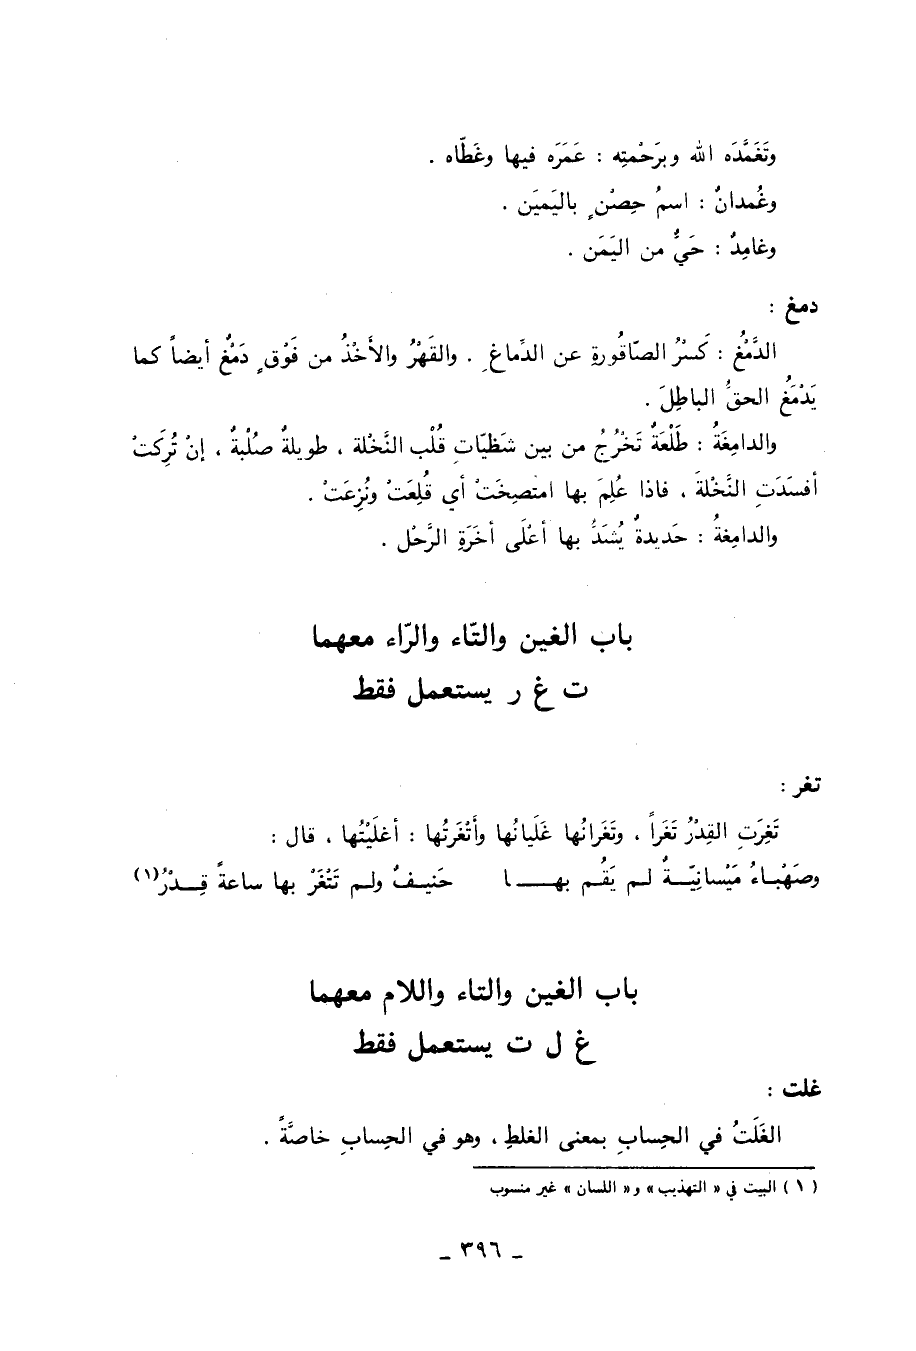 وتَغَمَّدَه الله وبرَحْمتِه : غَمَرَه فيها وغَطّاه .
وغُمدانُ : اسمُ حِصْنٍ باليَمَين .
وغامِدٌ : حَيٌّ من اليَمَن .
دمغ :
الدَّمْغُ : كَسْرُ الصّاقُورةِ عن الدِّماغِ . والقَهْرُ والأَخْذُ من فَوْقٍ دَمْغٌ أيضاً كما
يَدْمَغُ الحقُّ الباطِلَ .
والدامِغَةُ : طَلْعَةٌ تَخْرُجُ من بين شَظيّاتِ قُلْبِ النَّخْلة ، طويلةٌ صُلْبةٌ ، إنْ تُرِكَتْ
أفسَدَتِ النَّخْلةَ ، فاذا عُلِمَ بها امتصِخَتْ أي قُلِعَتْ ونُزِعَتْ .
والدامِغةُ : حَديدةٌ يُشَدُّ بها أعْلَى أخَرَةِ الرَّحْل .
باب الغين والتّاء والرّاء معهما
ت غ ر يستعمل فقط
تغر :
تَغِرَتِ القِدْرُ تَغَراً ، وتَغَرانُها غَلَيانُها وأَتْغَرتُها : أغلَيْتُها ، قال :
وصَهْباءُ مَيْسانِيّةٌ لم يَقُم بها حَنيفٌ ولم تَتْغَرْ بها ساعةً قِدْرُ(١)
باب الغين والتاء واللام معهما
غ ل ت يستعمل فقط
غلت :
الغَلَتُ في الحِسابِ بمعنى الغلطِ ، وهو في الحِسابِ خاصَّةً .
(١) البيت في « التهذيب» و« اللسان » غير منسوب
ـ ٣٩٦ ـ